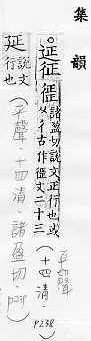 集韻
○延征徰
諸盈切說文正行也或
从彳古作徰文二十三
(十四清)
平聲
P238
延
說文
行也
(平聲、十四清、諸盈切、P238)